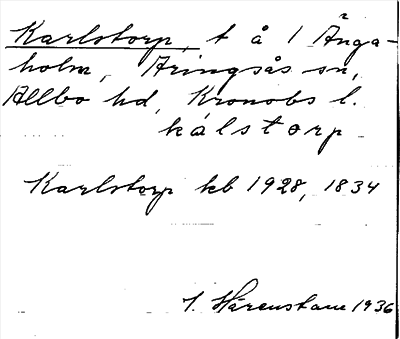 Karlstorp, t å 1 Änga-
holm, Aringsås sn,
Allbo hd, Kronobs l.
kálstorp
Karlstorp kb 1928, 1834
J. Härenstam 1936